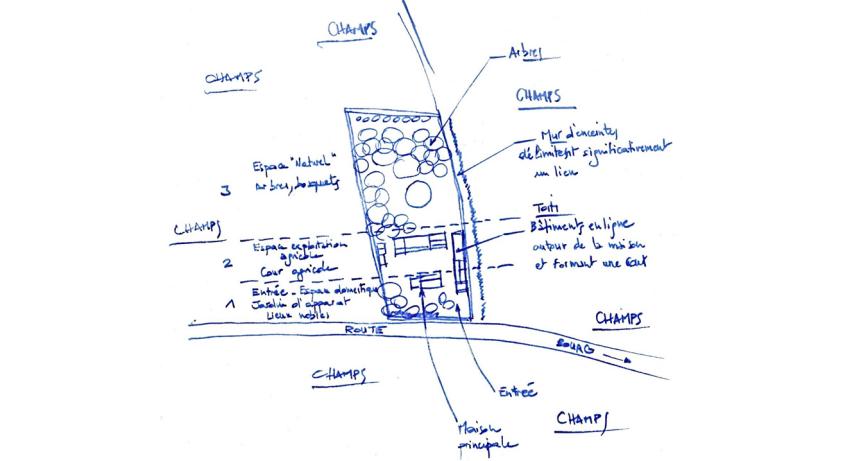 CHAMPS
Arbres
CHAMPS
CHAMPS
Mur d'enceintes
délimitent significativement
un lieu
Espace "Naturel"
Arbres, bosquets
3
Toits
CHAMPS
Bâtiments en ligne
autour de la maison
et forment une Cour
Espace exploitation
agricole
2
Cour agricole
Entrée - Espace domestique
1
Jardin d'apparat
Lieux nobles
CHAMPS
ROUTE
CHAMPS
Entrée
CHAMPS
Maison
principale